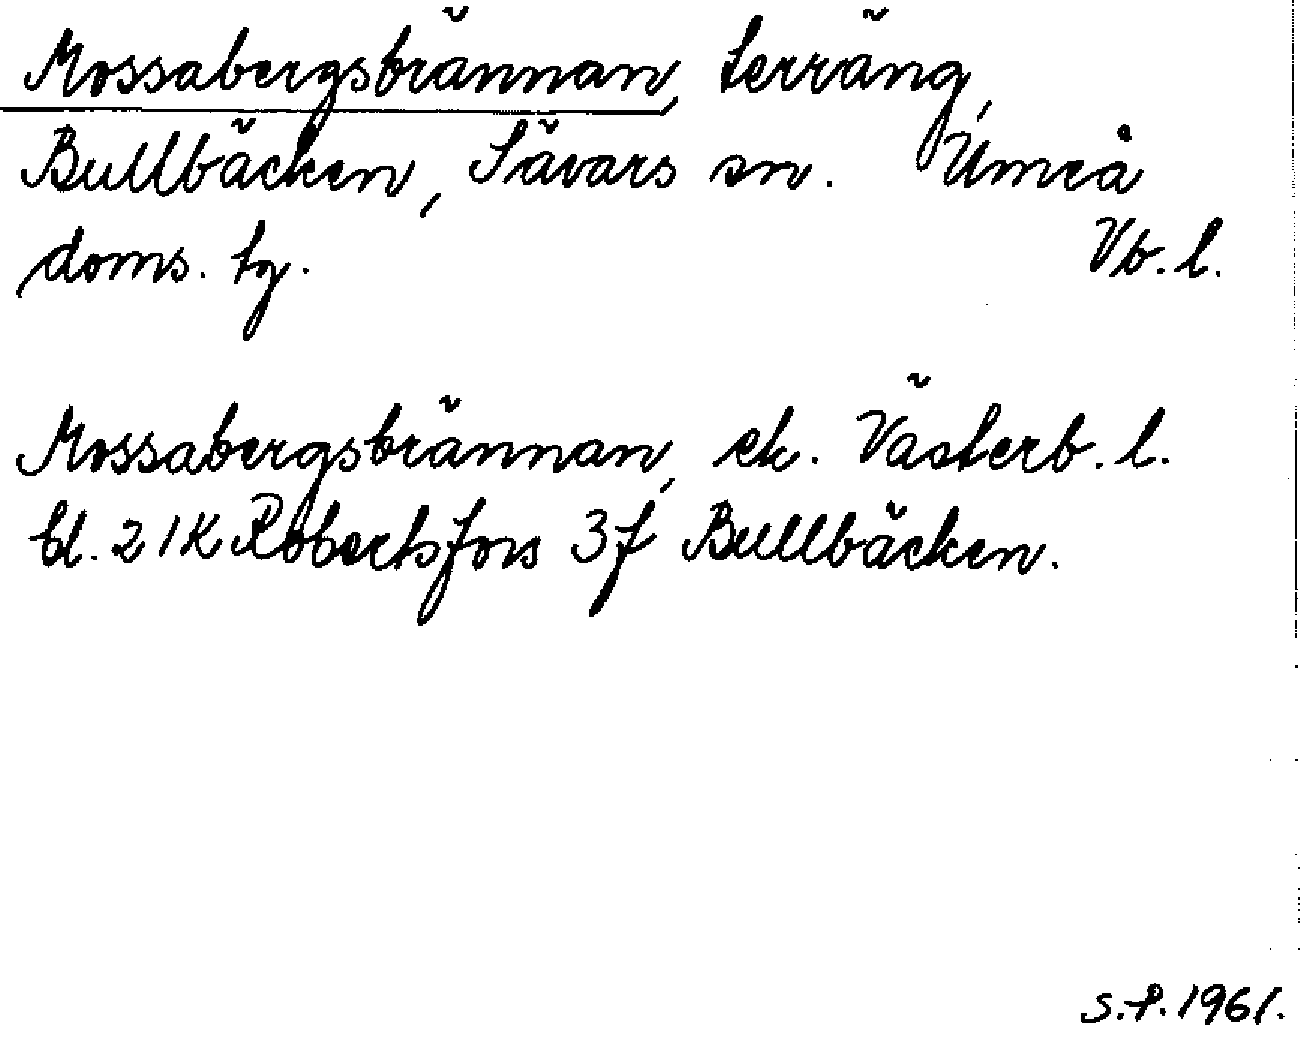 Mossabergsbrännan, terräng,
Bullbäcken, Sävars sn. Umeå
doms. tg. Vb. l.
Mossabergsbrännan, ek. Västerb. l.
bl. 21K Robertsfors 3f Bullbäcken.
S.P. 1961.